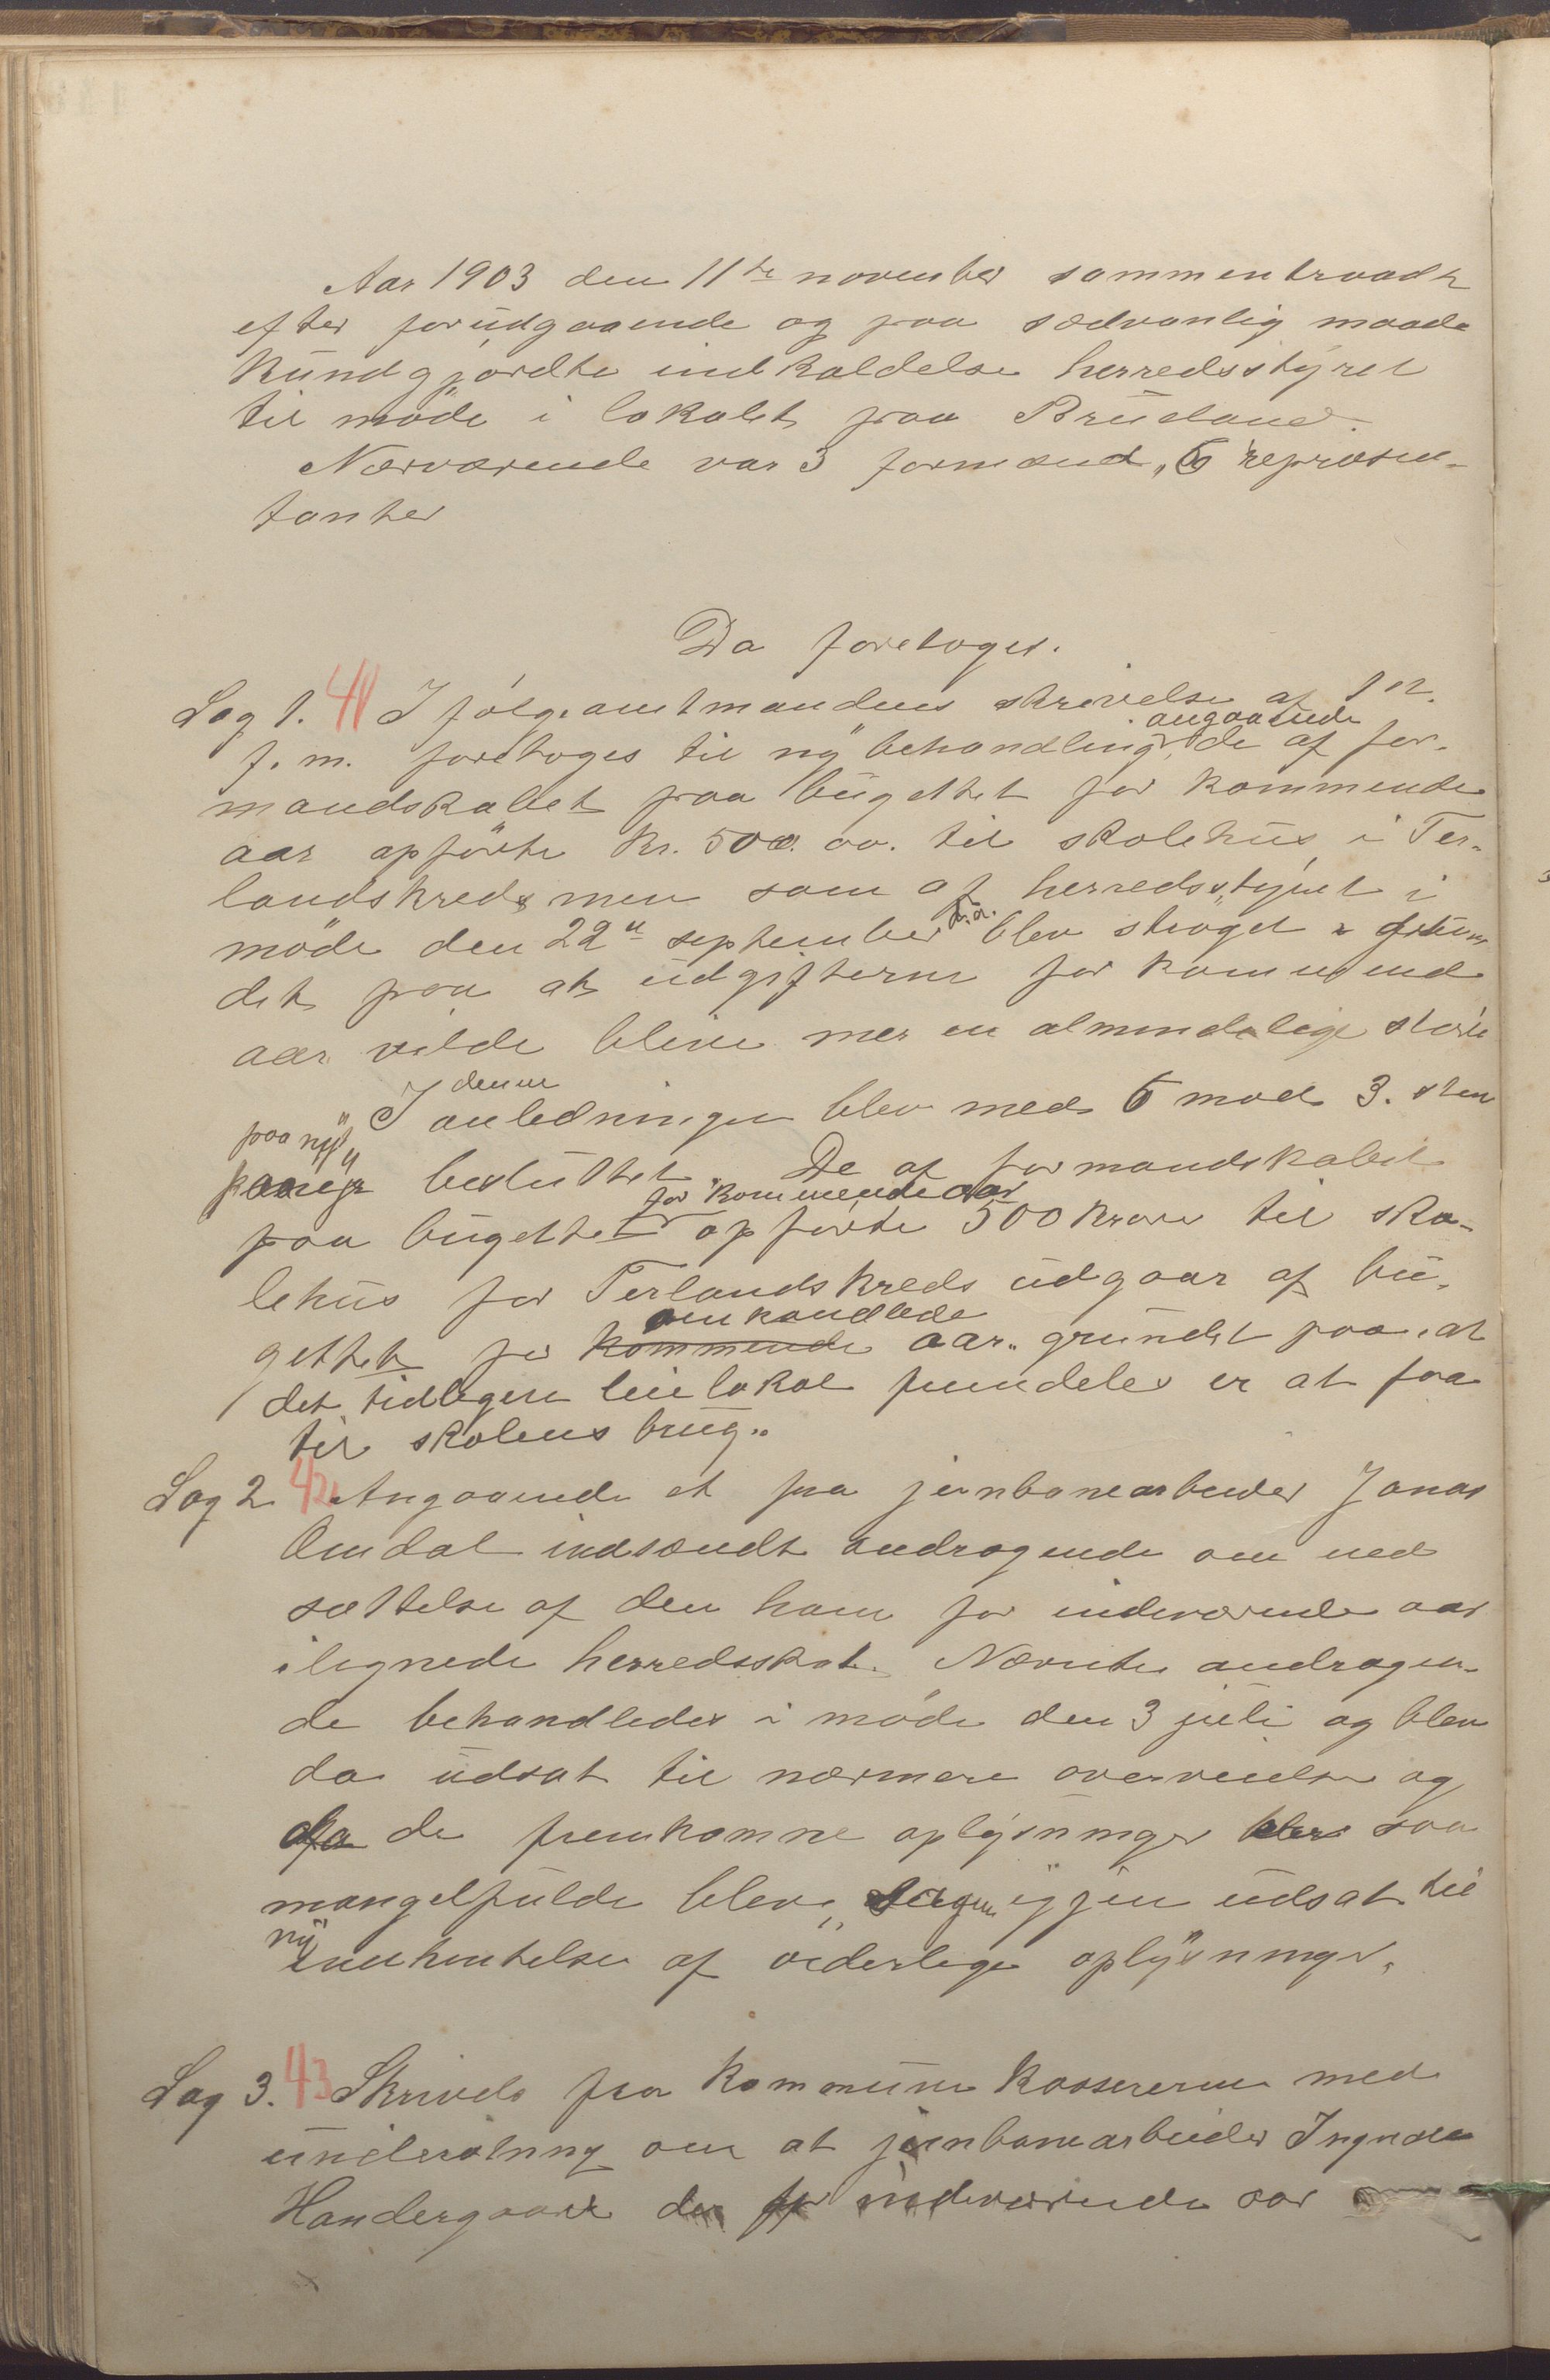 Aar 1903 den 11te november sammentraadte
efter forudgaaende og paa sædvanlig maade
kundgjordte indkaldelse herredsstyret
til møde i lokalet paa Brueland.
Nærværende var 3 formænd, 6 repræsen-
tanter
Da foretoges.
Sag 1. 41 I følge amtmandens skrivelse af 1ste
angaaende
f. m. foretoges til ny behandling de af for-
mandskabet paa bugettet for kommende
aar opførte kr. 500.00. til skolehus i Ter-
landskreds men som af herredsstyret i
møde den 22de september d.a. blev strøget grun-
det paa at udgifterne for kommende
aar vilde blive mer en almindelige store
denne
I anledningen blev med 6 mod 3. stem
paa nyt
besluttet. De af formandskabet
for kommende aar
paa bugettet opførte 500 kroner til sko-
lehus for Terlandskreds udgaar af bu-
omhandlede
gettet for kommende aar. grundet paa, at
det tidligere leielokal fremdeles er at faa
til skolens brug.
Sag 2 42 Angaaende et fra jernbanearbeider Jonas
Omdal indsendt andragende om ned
sættelse af den ham for indeværende aar
ilignede herredsskat. Nævnte andragen-
de behandledes i møde den 3 juli og blev
da udsat til nærmere overveielse og
da de fremkomne oplysninger var saa
mangelfulde blev sagen igjen udsat til
ny
indhentelse af yderlige oplysninger.
Sag 3. 43 Skrivels fra kommune kassereren med
underetning om at jernbanearbeider Ingvald
Handergaard der for indeværende aar